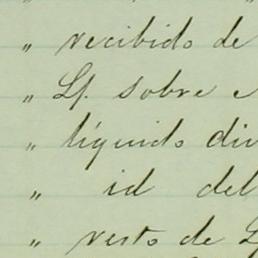 " recibido de
" Lp. sobre e
" líquido div
" id del
" resto de L